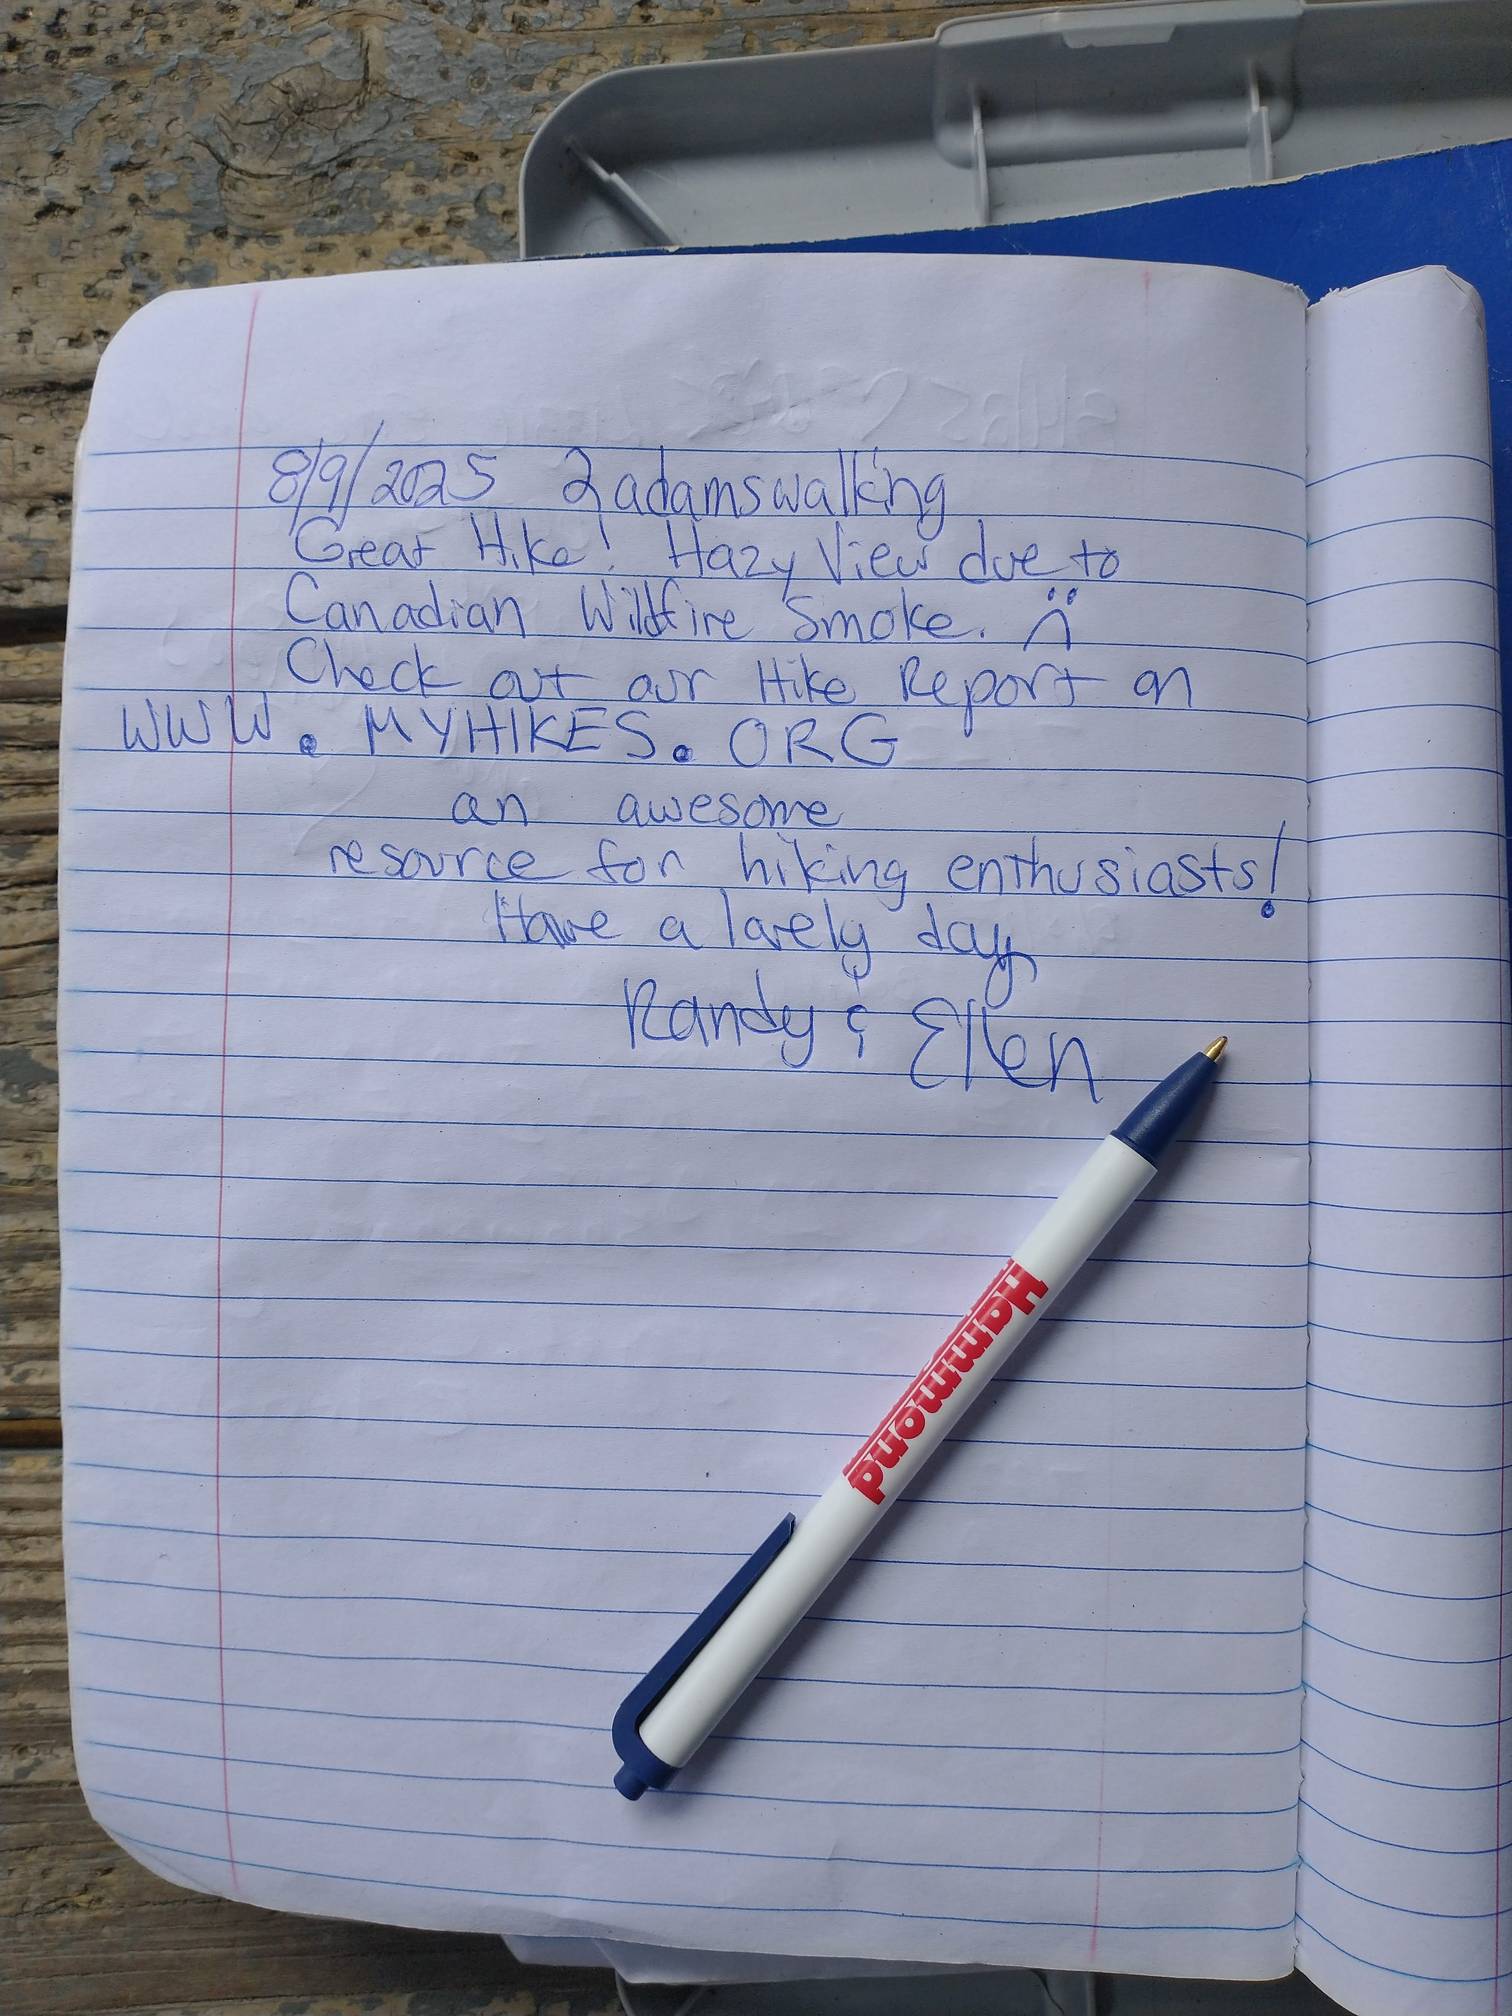 8/9/2025 2adamswalking
Great Hike! Hazy View due to
Canadian Wildfire Smoke. :(
Check out our Hike Report on
WWW.MYHIKES.ORG
an awesome
resource for hiking enthusiasts!
Have a lovely day
Randy & Ellen
Hammond